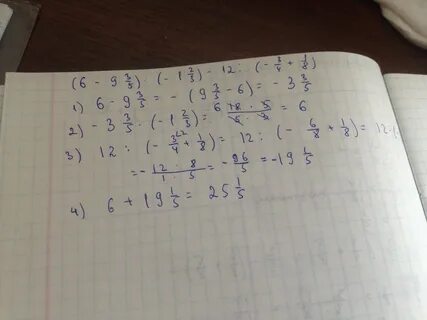 (6 - 9 3/5) · (-1 2/3) - 12 : (-3/4 + 1/8)
1) 6 - 9 3/5 = - (9 3/5 - 6) = - 3 3/5
2) - 3 3/5 · (-1 2/3) = = 6
3) 12 : (- 3/4 + 1/8) = 12 : (- 6/8 + 1/8) = 12 :
= - 12 · 8 / 1 · 5 = - 96/5 = -19 1/5
4) 6 + 19 1/5 = 25 1/5